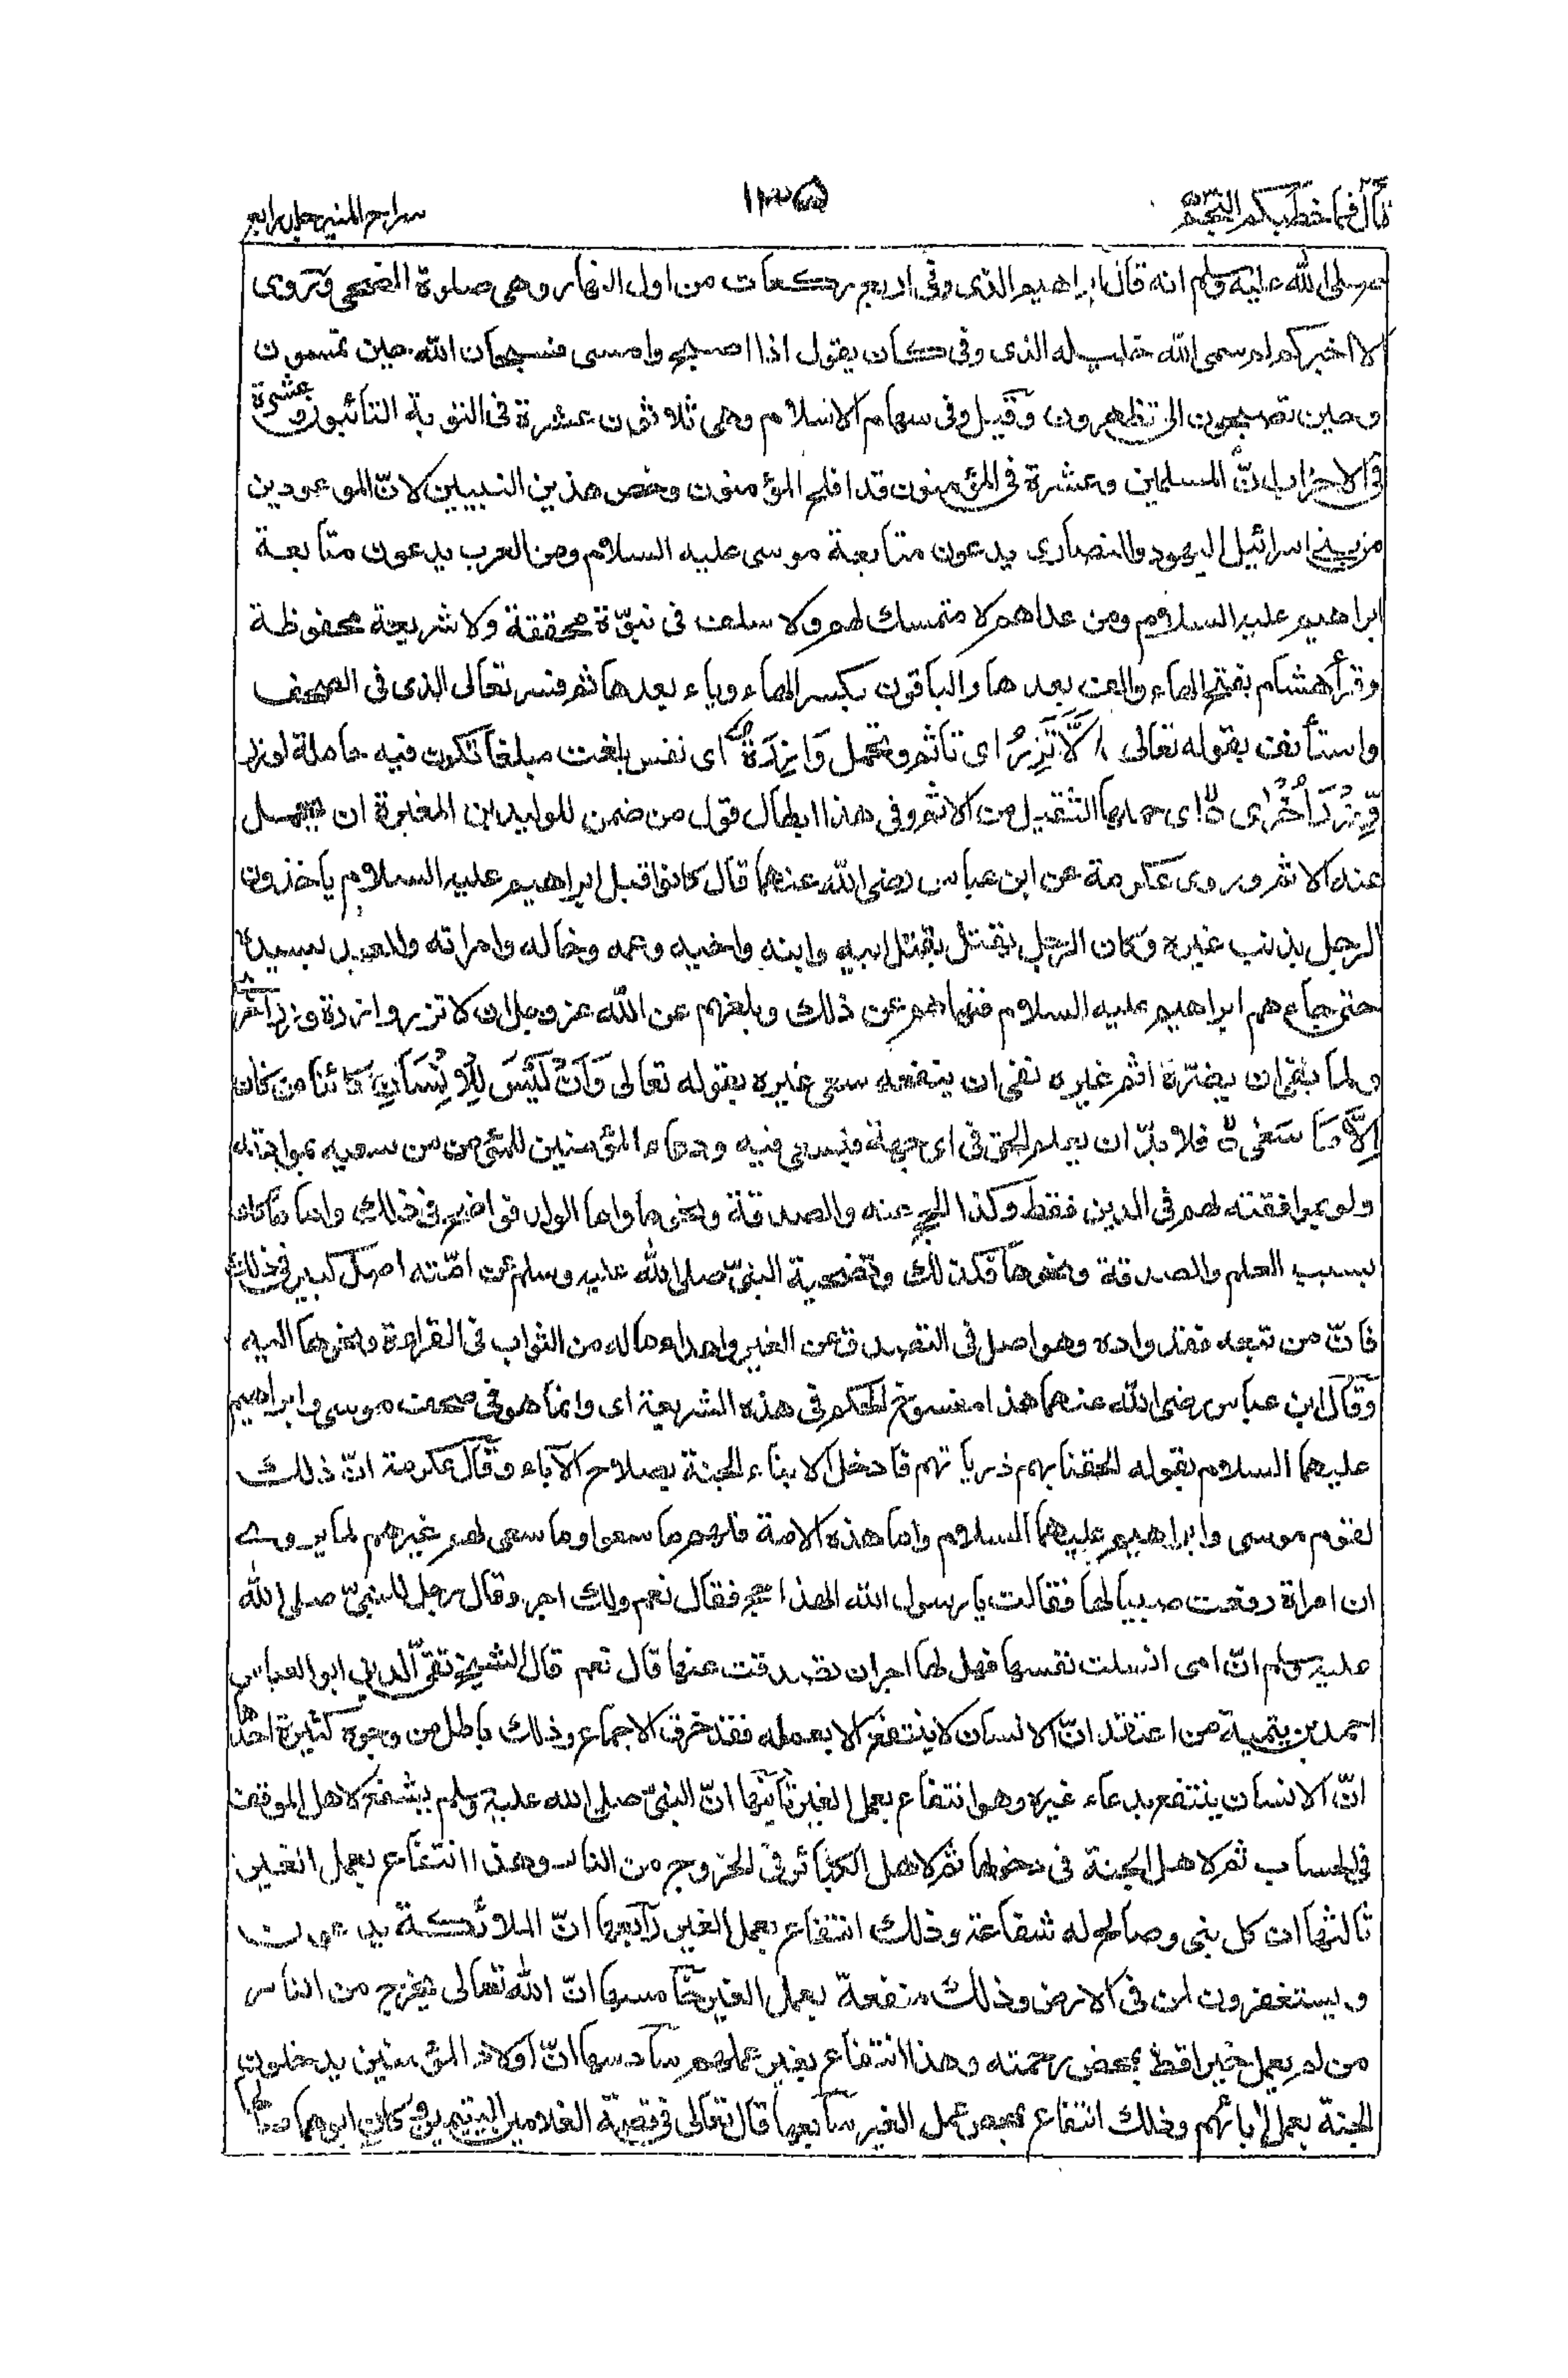 قال فما خطبكم النجم
١١٣٥
سراج المنير جلد رابع
صلى الله عليه وسلم انه قال ابراهيم الذى وفى اربع ركعات من اول النهار وهى صلوة الضحى وروى
الا اخبركم لم سمى الله خليله الذى وفى كان يقول اذا اصبح وامسى فسبحان الله حين تمسون
وحين تصبحون الى تظهرون وقيل وفى سهام الاسلام وهى ثلاثون عشرة فى التوبة التائبون وعشرة
فى الاحزاب انّ المسلمين وعشرة فى المؤمنون قد افلح المؤمنون وخص هذين النبيين لانّ الموعودين
من بنى اسرائيل اليهود والنصارى يدعون متابعة موسى عليه السلام ومن العرب يدعون متابعة
ابراهيم عليه السلام ومن عداهم لا متمسك لهم ولا سلف فى نبوّة محققة ولا شريعة محفوظة
وقرأ هشام بفتح الهاء والف بعدها والباقون بكسر الهاء وياء بعدها ثم فسر تعالى الذى فى الصحف
واستأنف بقوله تعالى اَلَّا تَزِرُ اى تأثم وتحمل وَازِرَةٌ اى نفس بلغت مبلغا تكون فيه حاملة لوزر
وِّزْرَ اُخْرٰى اى حملها الثقيل من الاثم وفى هذا ابطال قول من ضمن للوليد ابن المغيرة ان يحمل
عنه الاثم وروى عكرمة عن ابن عباس رضى الله عنهما قال كانوا قبل ابراهيم عليه السلام ياخذون
الرجل بذنب غيره وكان الرجل يقتل بقتل ابيه وابنه واخيه وعمه وخاله وامراته والعبد بسيده
حتى جاءهم ابراهيم عليه السلام فنهاهم عن ذلك وبلغهم عن الله عز وجل ان لا تزر وازرة وزر اخرى
ولما نفى ان يضرّه اثم غيره نفى ان ينفعه سعى غيره بقوله تعالى وَاَنْ لَّيْسَ لِلْاِنْسَانِ كائنا من كان
اِلَّا مَا سَعٰى فلا بدّ ان يعلم الحق فى اى جهة فيسعى فيه ودعاء المؤمنين للمؤمن من سعيه بموادّته
ولو بموافقته لهم فى الدين فقط وكذا الحج عنه والصدقة ونحوها واما الولد فواضح فى ذلك واما ما كان
بسبب العلم والصدقة ونحوها فكذلك وتضحية النبىّ صلى الله عليه وسلم عن امّته اصل كبير فى ذلك
فانّ من تبعه فقد وادّه وهو اصل فى التصدق عن الغير واهداء ماله من الثواب فى القراءة ونحوها اليه
وقال ابن عباس رضى الله عنهما هذا منسوخ الحكم فى هذه الشريعة اى وانما هو فى صحف موسى وابراهيم
عليهما السلام بقوله الحقنا بهم ذرياتهم فادخل الابناء الجنة بصلاح الآباء وقال عكرمة انّ ذلك
لقوم موسى وابراهيم عليهما السلام واما هذه الامة فلهم ما سعوا وما سعى لهم غيرهم لما يروى
ان امراة رفعت صبيا لها فقالت يا رسول الله الهذا حج فقال نعم ولك اجر وقال رجل للنبىّ صلى الله
عليه وسلم انّ امى افتلتت نفسها فهل لها اجر ان تصدقت عنها قال نعم قال الشيخ تقىّ الدين ابو العباس
احمد بن تيمية من اعتقد انّ الانسان لا ينتفع الا بعمله فقد خرق الاجماع وذلك باطل من وجوه كثيرة احدها
انّ الانسان ينتفع بدعاء غيره وهو انتفاع بعمل الغير ثانيها انّ النبىّ صلى الله عليه وسلم يشفع لاهل الموقف
فى الحساب ثم لاهل الجنة فى دخولها ثم لاهل الكبائر فى الخروج من النار وهذا انتفاع بعمل الغير
ثالثها ان كل نبى وصالح له شفاعة وذلك انتفاع بعمل الغير رابعها انّ الملائكة يدعون
ويستغفرون لمن فى الارض وذلك منفعة بعمل الغير خامسها انّ الله تعالى يخرج من النار
من لم يعمل خيرا قط بمحض رحمته وهذا انتفاع بغير عملهم سادسها انّ اولاد المؤمنين يدخلون
الجنة بعمل اٰبائهم وذلك انتفاع بمحض عمل الغير سابعها قال تعالى فى قصة الغلامين اليتيمين وكان ابوهما صالحا